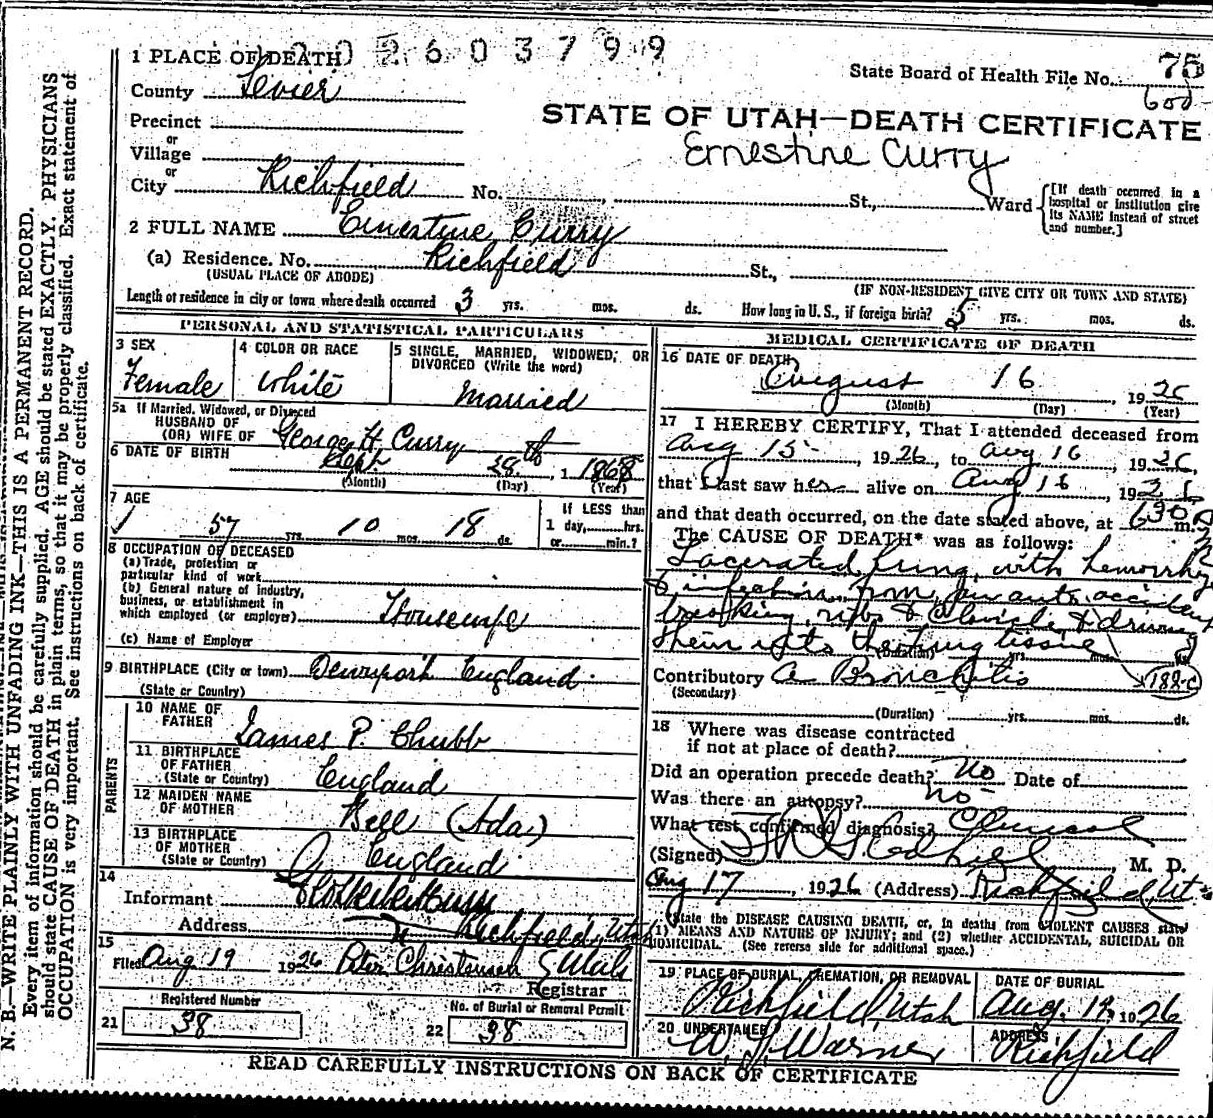 N. B.—WRITE PLAINLY WITH UNFADING INK—THIS IS A PERMANENT RECORD.
Every item of information should be carefully supplied. AGE should be stated EXACTLY. PHYSICIANS
should state CAUSE OF DEATH in plain terms, so that it may be properly classified. Exact statement of
OCCUPATION is very important. See instructions on back of certificate.
2603799
1 PLACE OF DEATH
State Board of Health File No. 75
County Sevier
STATE OF UTAH—DEATH CERTIFICATE
Precinct
Ernestine Curry
or
Village
or
City Richfield No. St., Ward
[If death occurred in a
hospital or institution give
its NAME instead of street
and number.]
2 FULL NAME Ernestine Curry
(a) Residence. No. Richfield St.,
(USUAL PLACE OF ABODE)
(IF NON-RESIDENT GIVE CITY OR TOWN AND STATE)
Length of residence in city or town where death occurred 3 yrs. mos. ds. How long in U. S., if foreign birth? 5 yrs. mos. ds.
PERSONAL AND STATISTICAL PARTICULARS
3 SEX
Female
4 COLOR OR RACE
White
5 SINGLE, MARRIED, WIDOWED, OR
DIVORCED (Write the word)
Married
5a If Married, Widowed, or Divorced
HUSBAND OF
(OR) WIFE OF George H. Curry
6 DATE OF BIRTH Sept 28th, 1868
(Month) (Day) (Year)
7 AGE
57 yrs. 10 mos. 18 ds.
If LESS than
1 day, hrs.
or min.?
8 OCCUPATION OF DECEASED
(a) Trade, profession or
particular kind of work
(b) General nature of industry,
business, or establishment in
which employed (or employer) Housewife
(c) Name of Employer
9 BIRTHPLACE (City or town) Devonport England
(State or Country)
PARENTS
10 NAME OF
FATHER James P. Chubb
11 BIRTHPLACE
OF FATHER
(State or Country) England
12 MAIDEN NAME
OF MOTHER Bell (Ada)
13 BIRTHPLACE
OF MOTHER
(State or Country) England
14
Informant
Address Richfield, Utah
15
Filed Aug 19 1926 Peter Christensen
Registrar
Registered Number
21 38
No. of Burial or Removal Permit
22 38
MEDICAL CERTIFICATE OF DEATH
16 DATE OF DEATH
August 16, 1926
(Month) (Day) (Year)
17 I HEREBY CERTIFY, That I attended deceased from
Aug 15, 1926, to Aug 16, 1926,
that I last saw her alive on Aug 16, 1926
and that death occurred, on the date stated above, at 630 m.
The CAUSE OF DEATH* was as follows:
Lacerated lung, with hemorrhage
& infection from an auto accident
breaking ribs & clavicle & driving
them into the lung tissue
(Duration) yrs. mos. ds.
Contributory Bronchitis
(Secondary)
188-c
(Duration) yrs. mos. ds.
18 Where was disease contracted
if not at place of death?
Did an operation precede death? No Date of
Was there an autopsy? no
What test confirmed diagnosis? Clinical
(Signed) , M. D.
Aug 17, 1926 (Address) Richfield, Ut
(State the DISEASE CAUSING DEATH, or, in deaths from VIOLENT CAUSES state
(1) MEANS AND NATURE OF INJURY; and (2) whether ACCIDENTAL, SUICIDAL OR
HOMICIDAL. (See reverse side for additional space.)
19 PLACE OF BURIAL, CREMATION, OR REMOVAL
Richfield, Utah
DATE OF BURIAL
Aug. 19, 1926
20 UNDERTAKER
Warner
ADDRESS
Richfield
READ CAREFULLY INSTRUCTIONS ON BACK OF CERTIFICATE